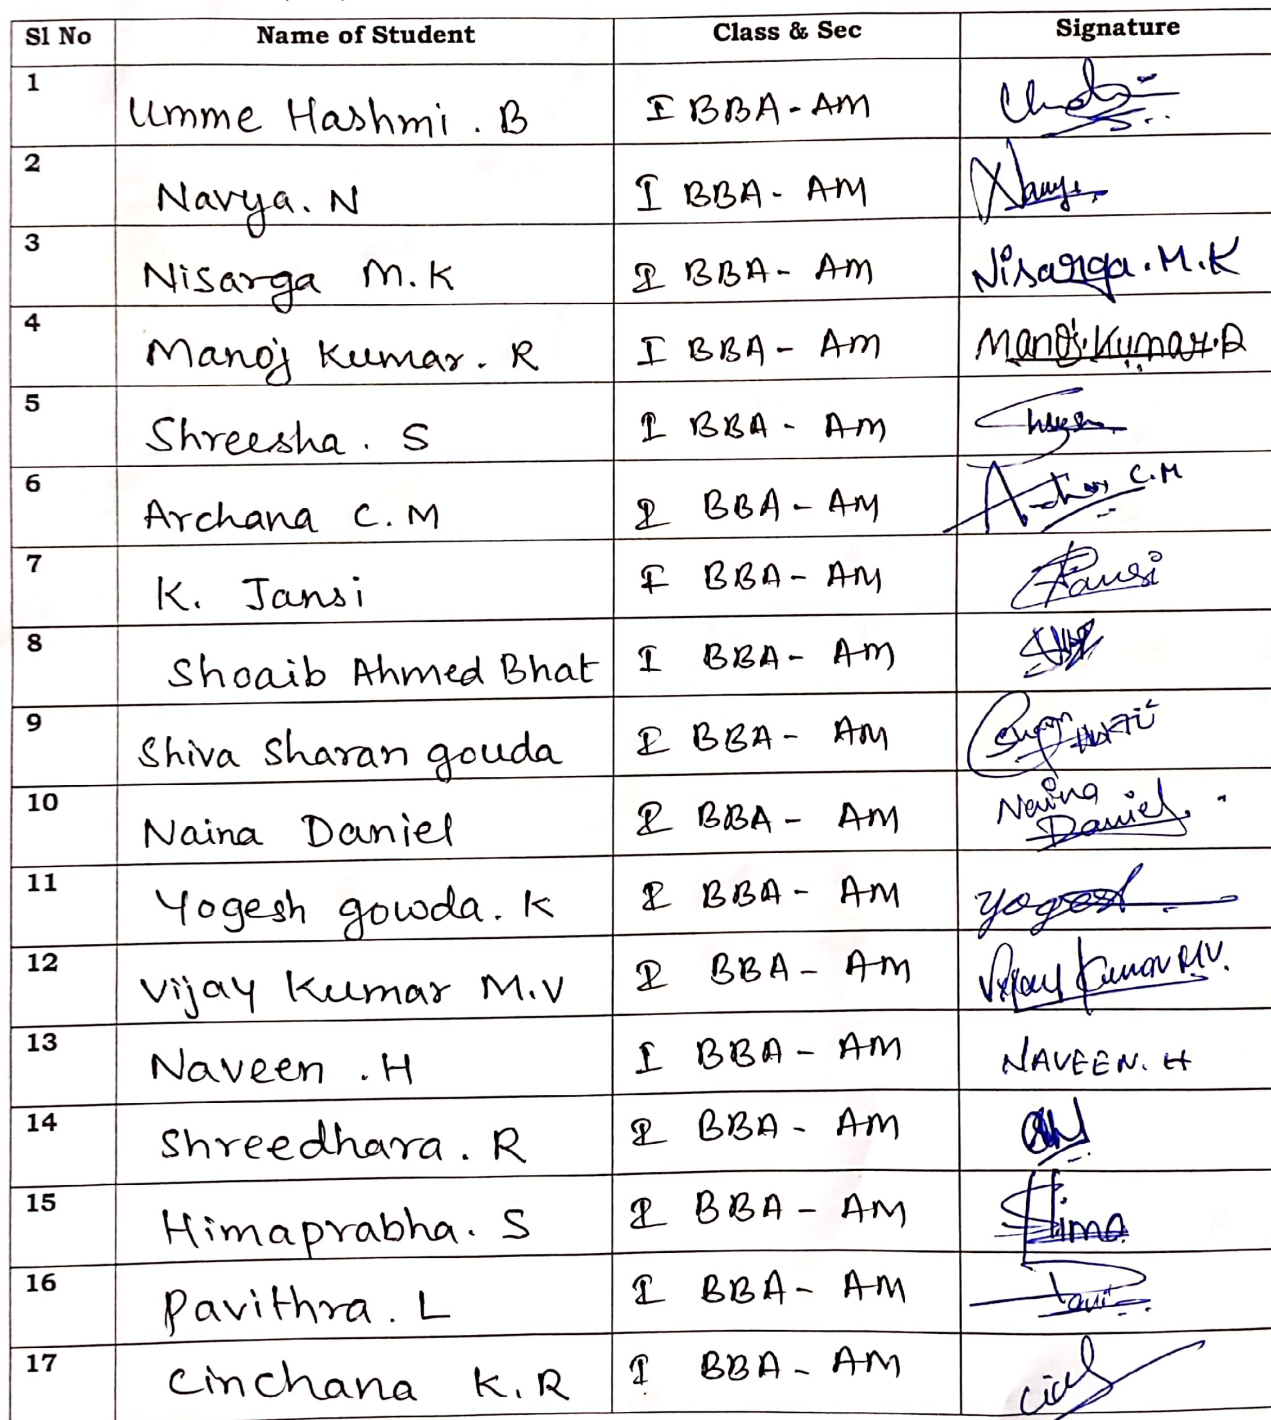 Sl No Name of Student Class & Sec Signature
1 Umme Hashmi . B I BBA - AM
2 Navya. N I BBA - AM
3 Nisarga M.K I BBA - AM Nisarga.M.K
4 Manoj Kumar. R I BBA - AM Manoj.Kumar.R
5 Shreesha. S I BBA - AM
6 Archana C.M I BBA - AM C.M
7 K. Jansi I BBA - AM Jansi
8 Shoaib Ahmed Bhat I BBA - AM
9 Shiva Sharan gouda I BBA - AM
10 Naina Daniel I BBA - AM Naina Daniel
11 Yogesh gowda. K I BBA - AM Yogesh
12 Vijay Kumar M.V I BBA - AM Vijay Kumar M.V.
13 Naveen .H I BBA - AM NAVEEN. H
14 Shreedhara. R I BBA - AM
15 Himaprabha. S I BBA - AM Hima
16 Pavithra. L I BBA - AM Pavi
17 Cinchana K.R I BBA - AM